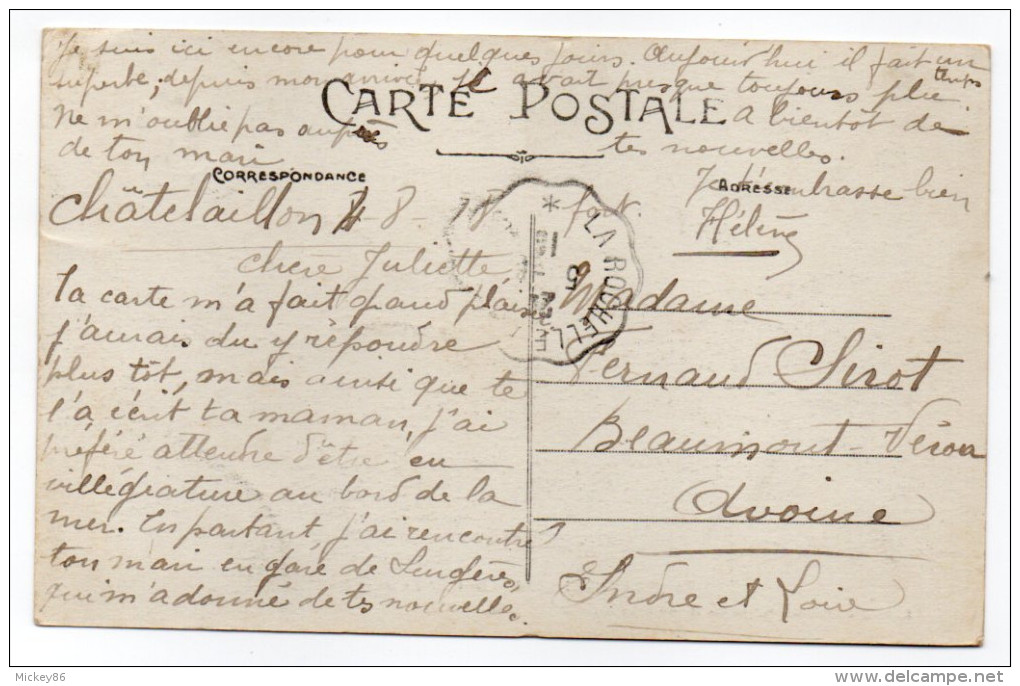 Je suis ici encore pour quelques jours. Aujourd'hui il fait un
superbe, depuis mon arrivée il avait presque toujours plu. temps
CARTE POSTALE
Ne m'oublie pas auprès
A bientôt de
de ton mari
tes nouvelles.
CORRESPONDANCE
ADRESSE
Je t'embrasse bien
Châtelaillon 4-8-
fort.
Hélène
LA ROCHELLE
chère Juliette
Ta carte m'a fait grand plaisir
Madame
j'aurais du y répondre
Fernand Sirot
plus tôt, mais ainsi que te
l'a écrit ta maman, j'ai
Beaumont-Véron
préféré attendre d'être en
villégiature au bord de la
Avoine
mer. En partant j'ai rencontré
ton mari en gare de Surgères,
Indre et Loire
qui m'a donné de tes nouvelles.
Mickey86
delcampe.net